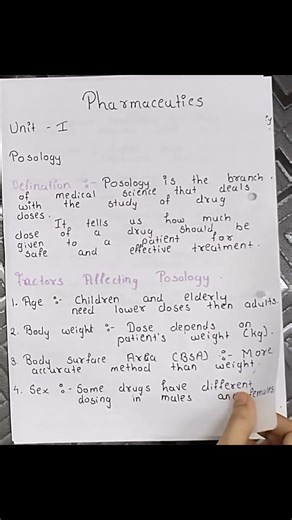 Pharmaceutics
Unit - I
Posology
Defination :- Posology is the branch
of medical science that deals
with the study of drug
doses.
It tells us how much
dose of a drug should be
given to a patient for
safe and effective treatment.
Factors Affecting Posology
1. Age :- Children and elderly
need lower doses then adults.
2. Body weight :- Dose depends on
patient's weight (kg).
3. Body surface Area (BSA) :- More
accurate method than weight.
4. Sex :- Some drugs have different
dosing in males and females.